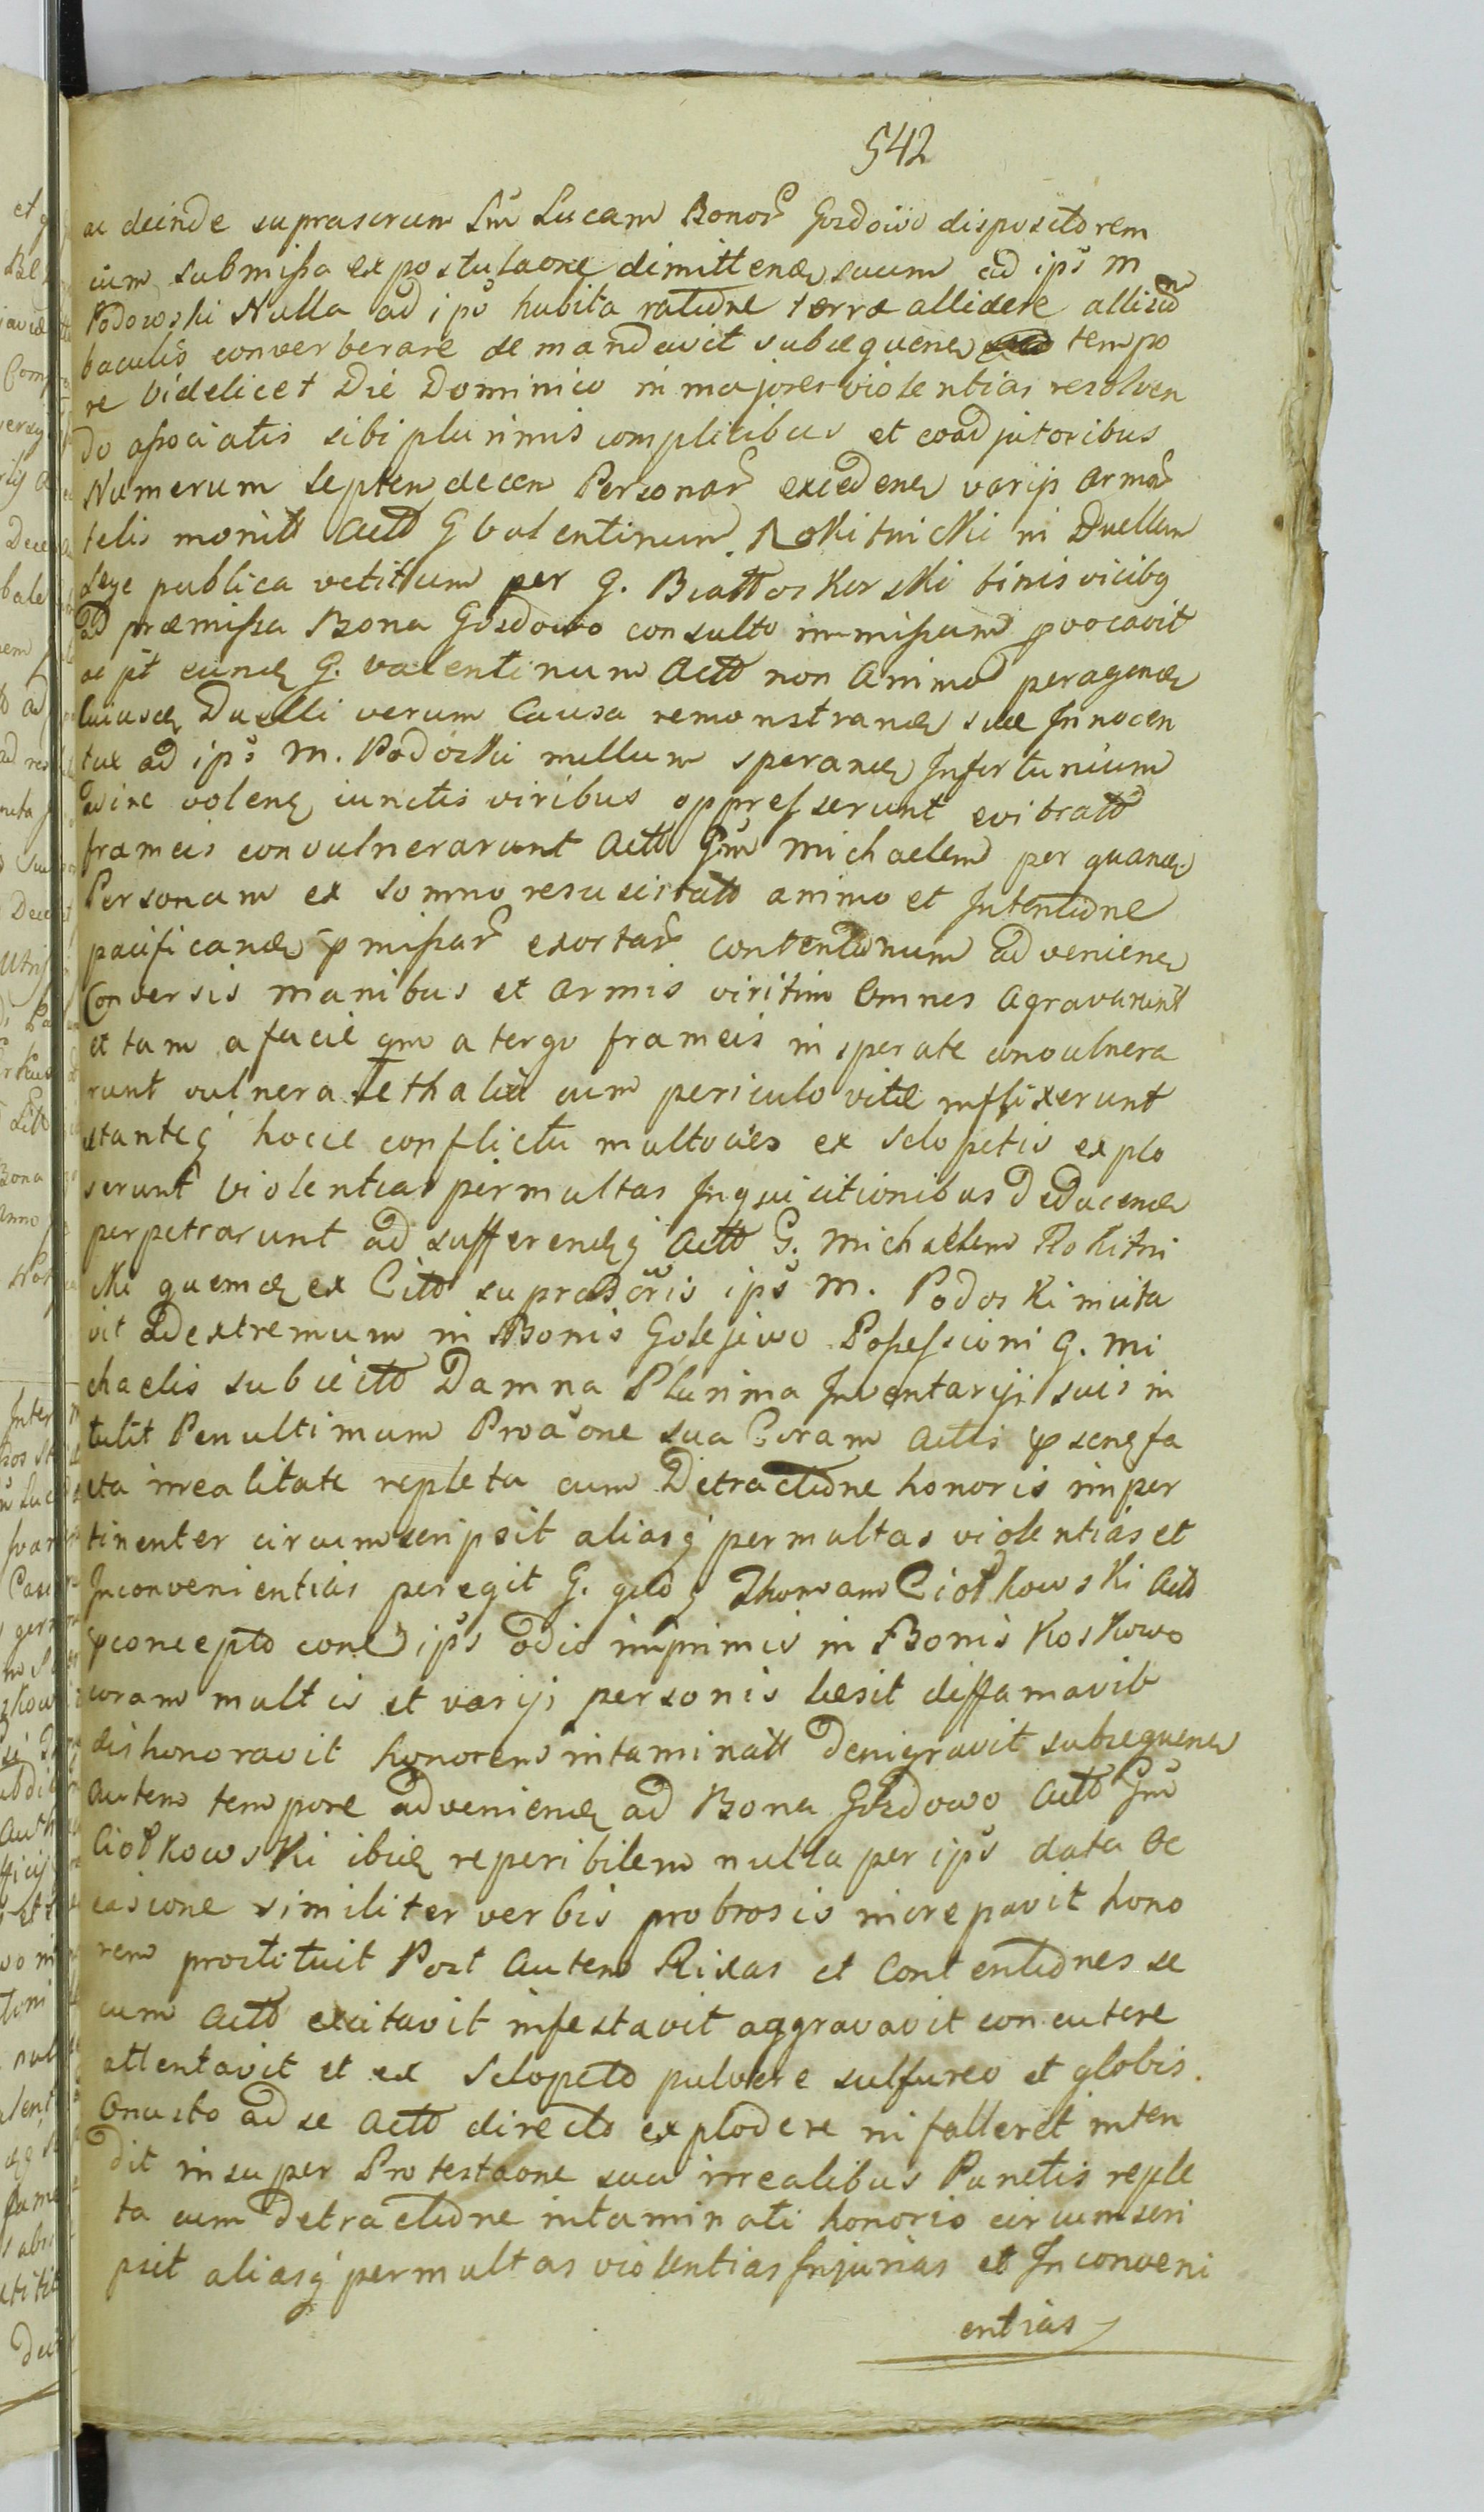 542
ac deinde suprascrum Sm Lucam Bonor Gozdowo dispositorem
cum submissa expostulaone dimittend suum ad ips M
Podowski Nulla ad ips habita ratione terræ allidere allisu
baculis converberare demandavit subsequen tempo
re videlicet Die Dominico in majores violentias resolven
do associatis sibi plurimis complicibus et coadjutoribus
Numerum Septemdecem Personar exceden varijs armor
telis monitt Actt G Valentinum Rokitnicki in Duellum
Lege publica vetitum per G. Biattoskorski binis vicibq
ad præmissa Bona Gozdowo consulto immissum pvocavit
ac pt eund G. Valentinum Actt non Animo peragend
huiusd Duelli verum Causa remonstrand suæ Innocen
tiæ ad ips M. Podoski nullum sperand Infortunium
exire volen iunctis viribus oppresserunt evibratt
frameis convulnerarunt Actt Gm Michaelem per quand
Personam ex somno resuscitatt animo et Intentione
pacificand pmissar exortar contentionum advenien
Conversis manibus et armis viritim Omnes Agravarunt
et tam a facie qm a tergo frameis insperate convulnera
runt vulnera Lethalia cum periculo vitæ inflixerunt
stanteq hocce conflictu multoties ex Sclopetis explo
serunt violentias permultas Inquisitionibus deducend
perpetrarunt ad sufferendq Actt G. Michaelem Rokitni
cki quemd ex Citto ips M. Podoski incita
vit ad extremum in Bonis Golejewo Possessioni G. Mi
chaelis subiectt Damna Plurima Inventarijs suis in
tulit Penultimum Proaone sua Coram Actis psenq fa
cta irrealitate repleta cum Detractione honoris imper
tinenter circumscripsit aliasq permultas violentias et
Inconvenientias peregit G. Thomam Ciołkowski Actt
pconcepto ips odio imprimis in Bonis Koskowo
coram multis et varijs personis læsit diffamavit
dishonoravit honorem intaminatt denigravit subsequen
autem tempore advenien ad Bona Gozdowo Actt Gm
Ciołkowski ibid reperibilem nulla per ips data oc
casione similiter verbis probrosis increpavit hono
rem prostituit Post autem Rixas et Contentiones se
cum Actt excitavit infestavit aggravavit concutere
attentavit et ex Sclopeto pulvere sulfureo et globis
Onusto ad se Actt directo explodere ni falleret inten
dit insuper Protestaone sua irrealibus Punctis reple
ta cum detractione intaminati honoris circumscri
psit aliasq permultas violentias Injurias et Inconveni
entias